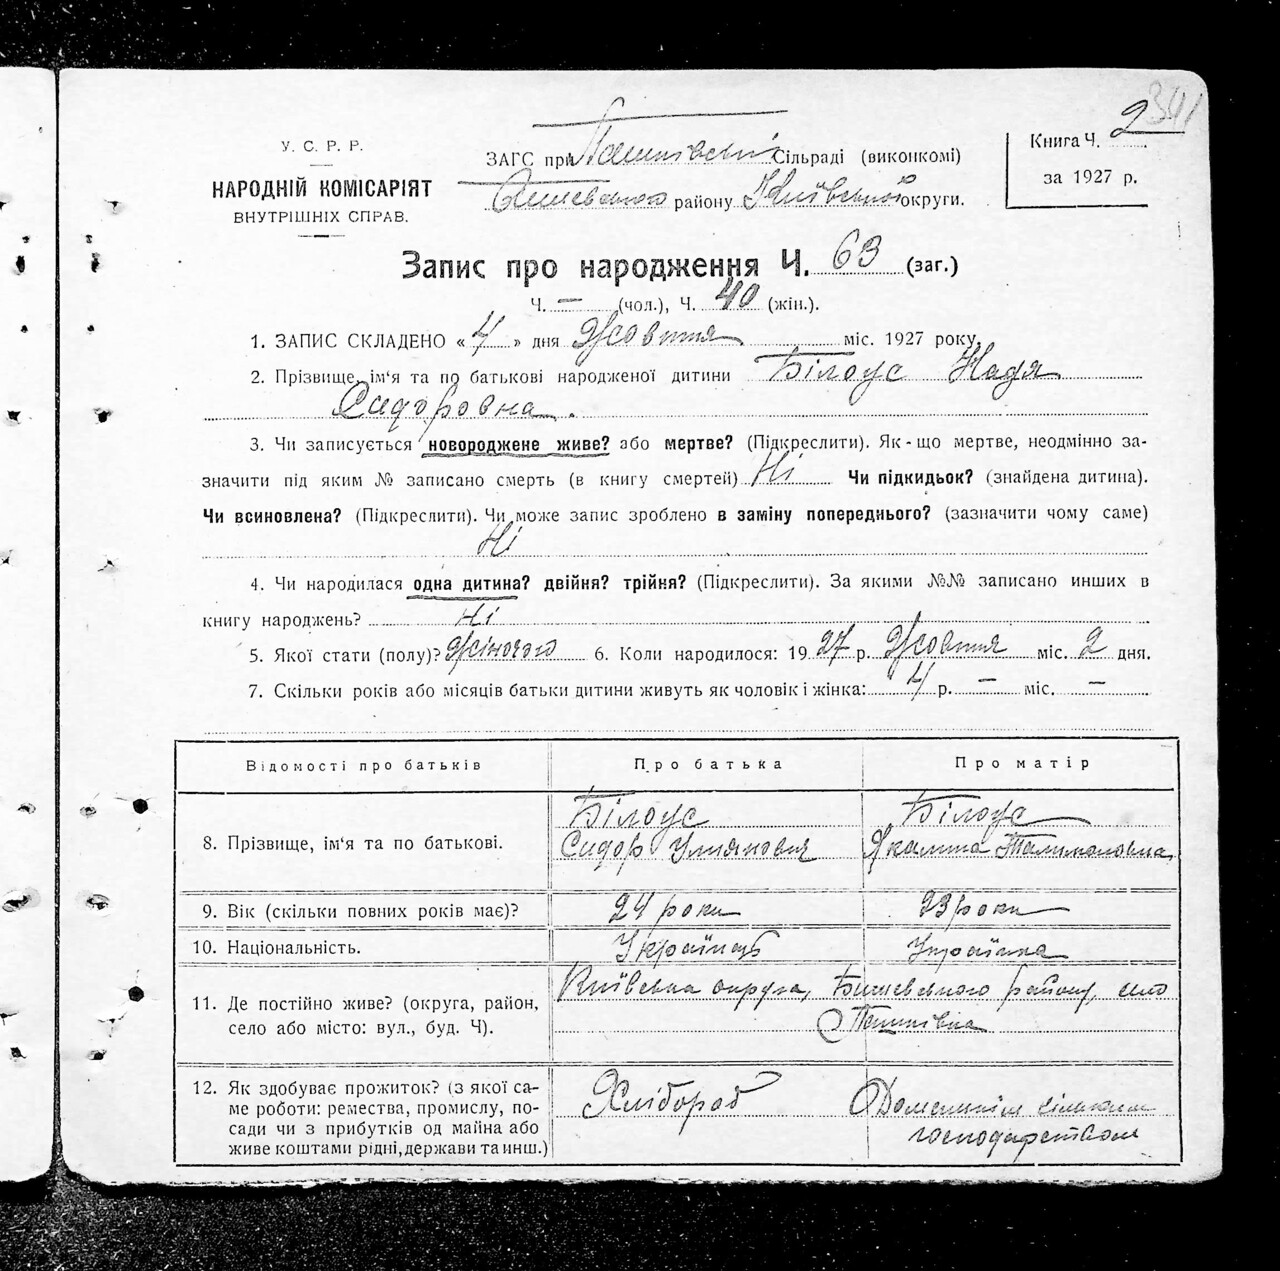 2 341
У. С. Р. Р.
НАРОДНІЙ КОМІСАРІЯТ
ВНУТРІШНІХ СПРАВ.
ЗАГС при Пашківській Сільраді (виконкомі)
району Київської округи.
Книга Ч. 2
за 1927 р.
Запис про народження Ч. 63 (заг.)
Ч. — (чол.), Ч. 40 (жін.).
1. ЗАПИС СКЛАДЕНО « 4 » дня Жовтня міс. 1927 року.
2. Прізвище, ім'я та по батькові народженої дитини Білоус Надя
Сидоровна.
3. Чи записується новороджене живе? або мертве? (Підкреслити). Як-що мертве, неодмінно за-
значити під яким № записано смерть (в книгу смертей) Ні Чи підкидьок? (знайдена дитина).
Чи всиновлена? (Підкреслити). Чи може запис зроблено в заміну попереднього? (зазначити чому саме)
Ні
4. Чи народилася одна дитина? двійня? трійня? (Підкреслити). За якими №№ записано инших в
книгу народжень? Ні
5. Якої стати (полу)? Жіночого 6. Коли народилося: 1927 р. Жовтня міс. 2 дня.
7. Скільки років або місяців батьки дитини живуть як чоловік і жінка: 4 р. — міс. —
Відомості про батьків Про батька Про матір
8. Прізвище, ім'я та по батькові. Білоус Білоус
Сидор
9. Вік (скільки повних років має)? 24 роки 23 роки
10. Національність. Українець Українка
11. Де постійно живе? (округа, район, село або місто: вул., буд. Ч). Київська округа, Бишевського району, село
Пашківка
12. Як здобуває прожиток? (з якої са- Хлібороб Домашнім сільським
ме роботи: ремества, промислу, по- господарством
сади чи з прибутків од майна або
живе коштами рідні, держави та инш.)